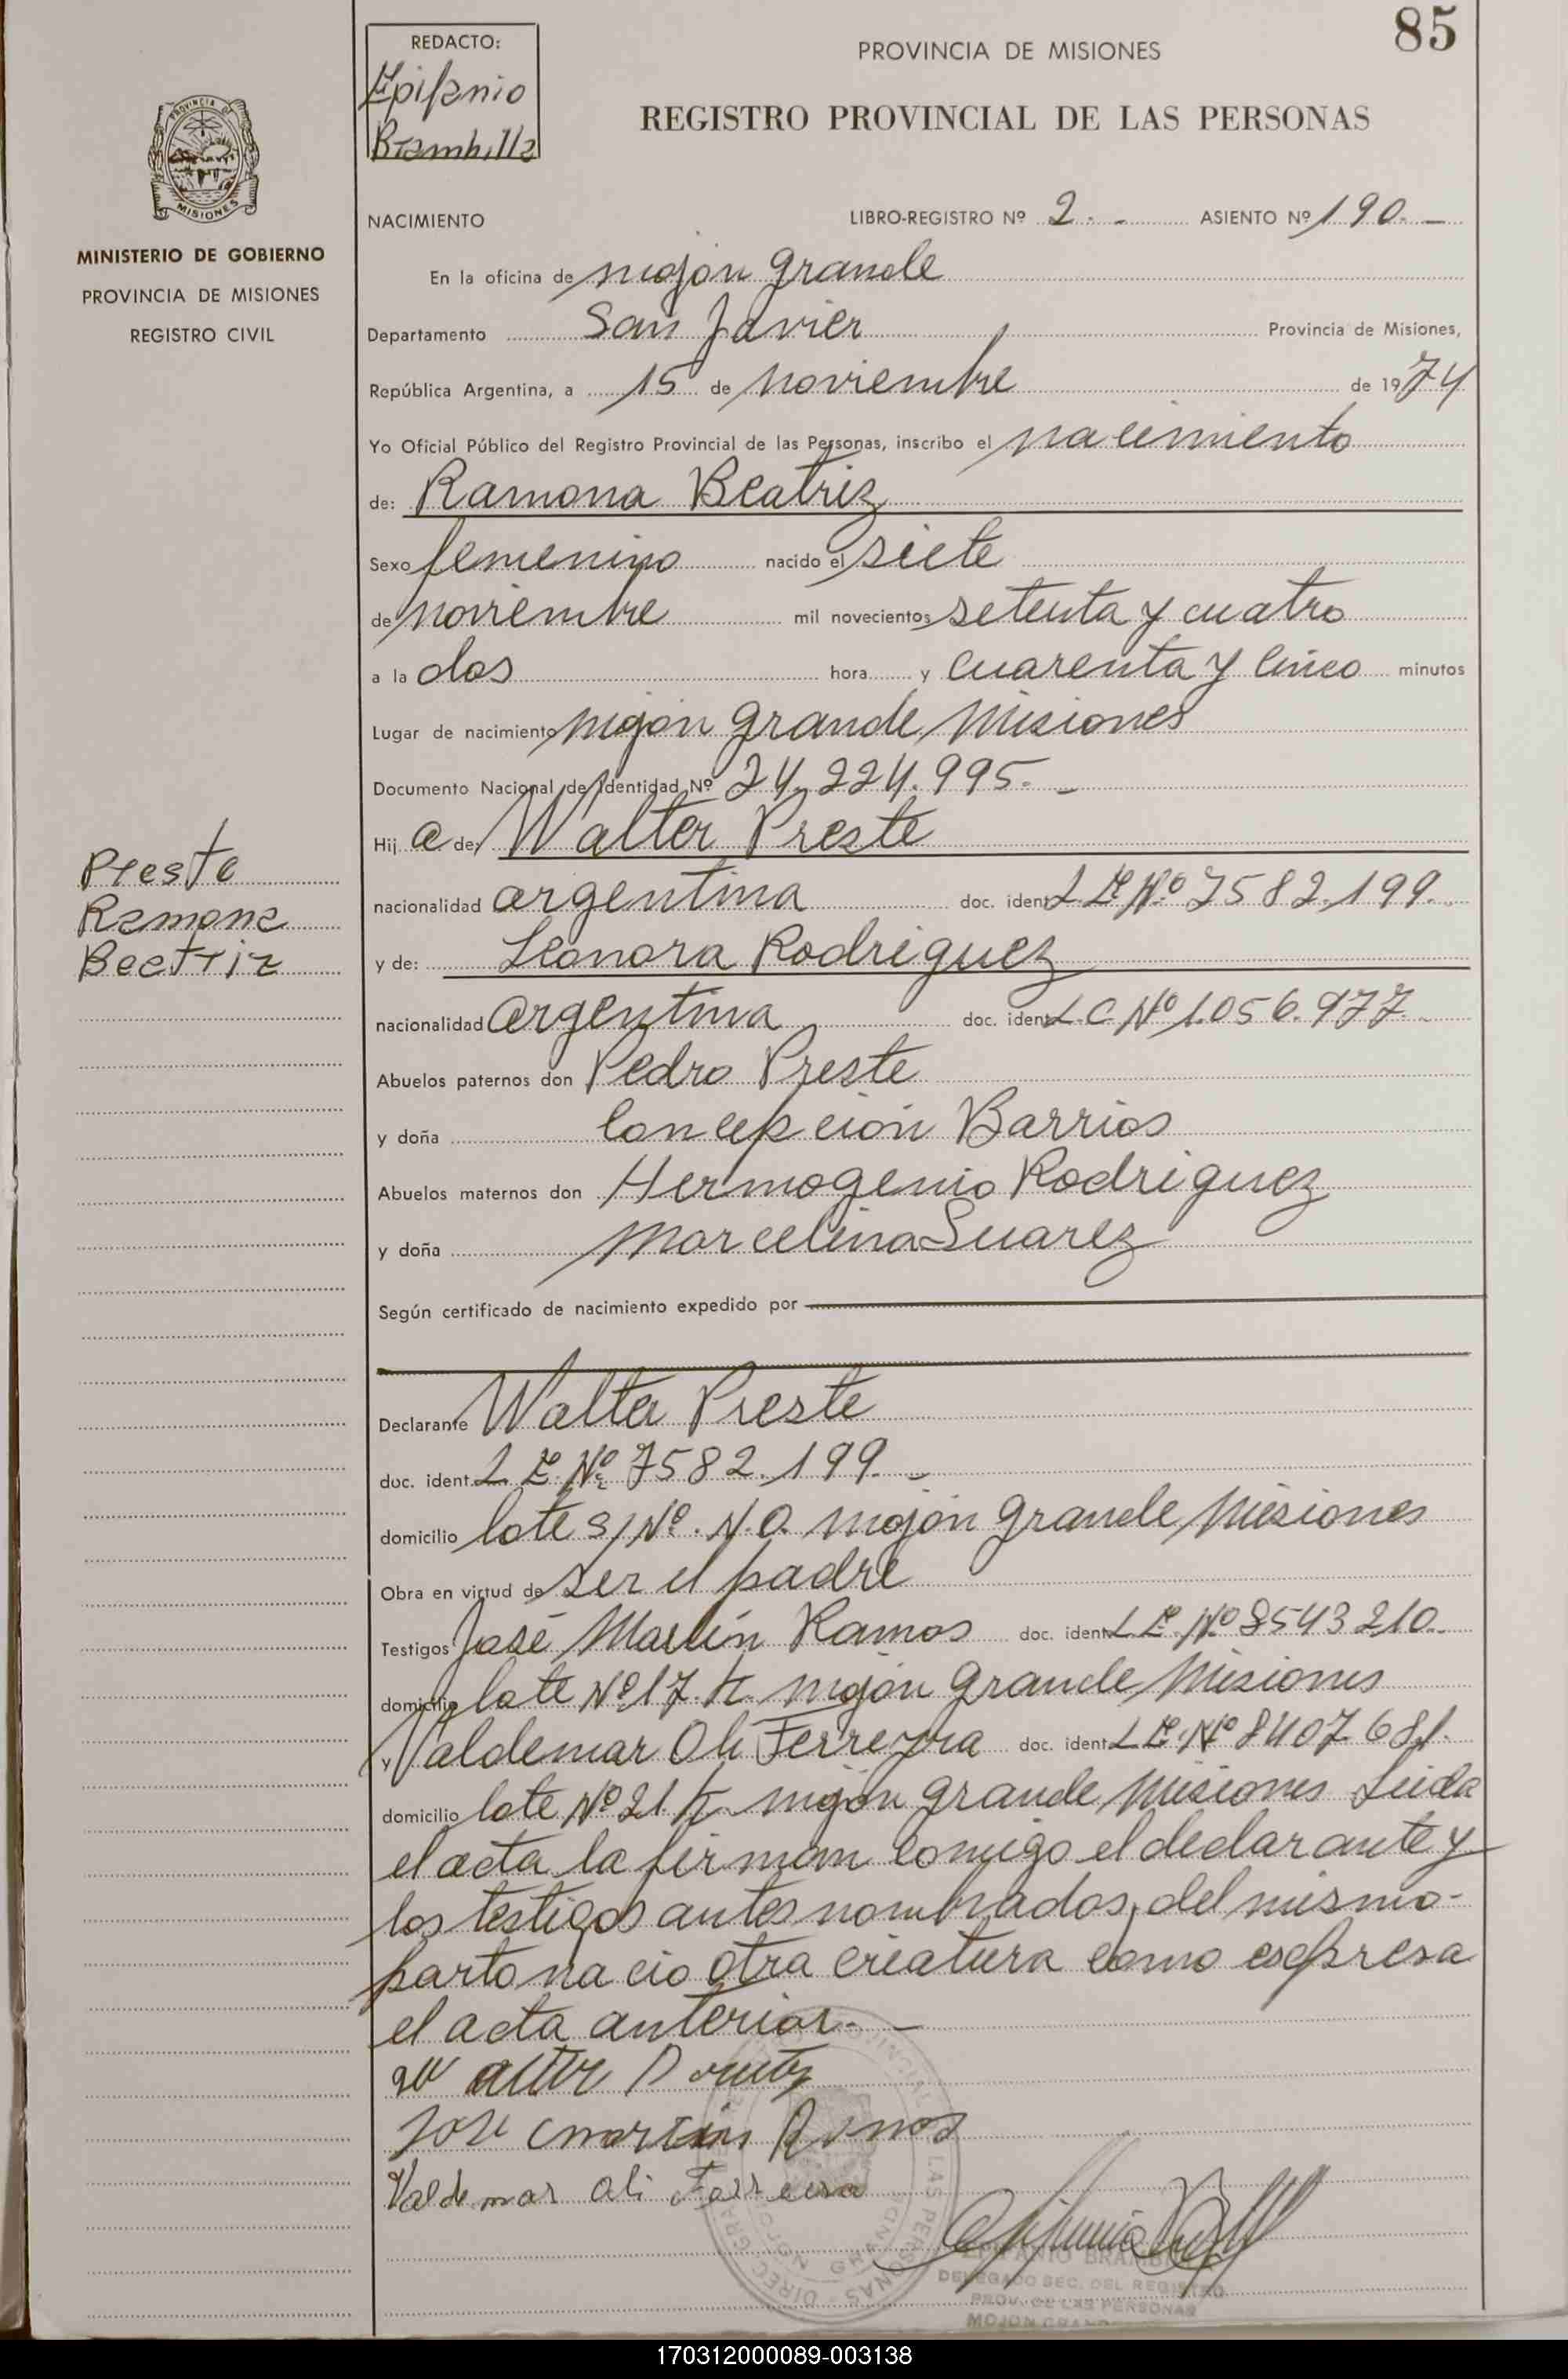 85
REDACTO:
Epifanio
Brambilla
PROVINCIA DE MISIONES
REGISTRO PROVINCIAL DE LAS PERSONAS
PROVINCIA D
MISIONES
MINISTERIO DE GOBIERNO
PROVINCIA DE MISIONES
REGISTRO CIVIL
NACIMIENTO LIBRO-REGISTRO Nº 2.- ASIENTO Nº 190.-
En la oficina de mojón grande
Departamento San Javier Provincia de Misiones,
República Argentina, a 15 de noviembre de 1974
Yo Oficial Público del Registro Provincial de las Personas, inscribo el nacimiento
de: Ramona Beatriz
Sexo femenino nacido el siete
de noviembre mil novecientos setenta y cuatro
a la dos hora y cuarenta y cinco minutos
Lugar de nacimiento mojón grande Misiones
Documento Nacional de Identidad Nº 24.224.995.-
Hij a de: Walter Preste
nacionalidad argentina doc. ident L E Nº 7582.199.
y de: Leonora Rodriguez
nacionalidad argentina doc. ident L.C. Nº 1.056.977.
Abuelos paternos don Pedro Preste
y doña Concepción Barrios
Abuelos maternos don Hermogenio Rodriguez
y doña Marcelina Suarez
Preste
Ramona
Beatriz
Según certificado de nacimiento expedido por
Declarante Walter Preste
doc. ident. L E. Nº 7582.199.-
domicilio lote S/Nº. N.O. mojón grande Misiones
Obra en virtud de ser el padre
Testigos José Martín Ramos doc. ident L E. Nº 8543210.
domicilio lote Nº 17. mojón grande Misiones
y Valdemar Oli Ferreyra doc. ident L E. Nº 8407681.
domicilio lote Nº 21. mojón grande Misiones Leida
el acta la firman comigo el declarante y
los testigos antes nombrados, del mismo-
parto nacio otra creatura como esepresa
el acta anterior.-
José Martin Ramos
Valdemar oli Ferreira
EPIFANIO BRAMBILLA
DELEGADO SEC. DEL REGISTRO
PROV. DE LAS PERSONAS
MOJON GRANDE
170312000089-003138